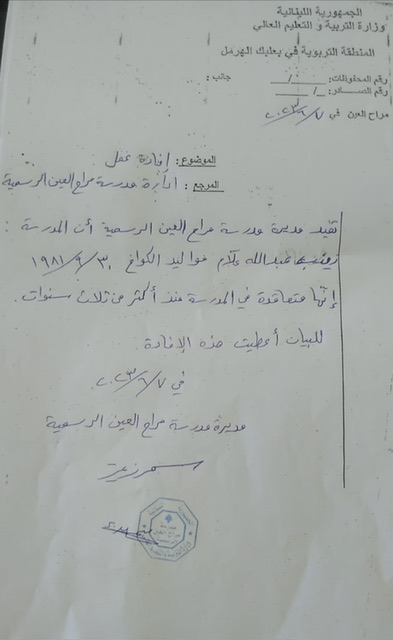 الجمهورية اللبنانية
وزارة التربية و التعليم العالي
المنطقة التربوية في بعلبك الهرمل
رقم المحفوظات: / جانب :
رقم الصـــادر: /
مراح العين في ٢٠٢٣/٦/٧
الموضوع: إفادة عمل
المرجع : إدارة مدرسة مراح العين الرسمية
تفيد مديرة مدرسة مراح العين الرسمية أن المدرسة :
زينب عبدالله علّام مواليد الكواخ ١٩٨١/٩/٣٠
إنّها متعاقدة في المدرسة منذ أكثر من ثلاث سنوات .
للبيان أعطيت هذه الإفادة.
في ٢٠٢٣/٦/٧
مديرة مدرسة مراح العين الرسمية